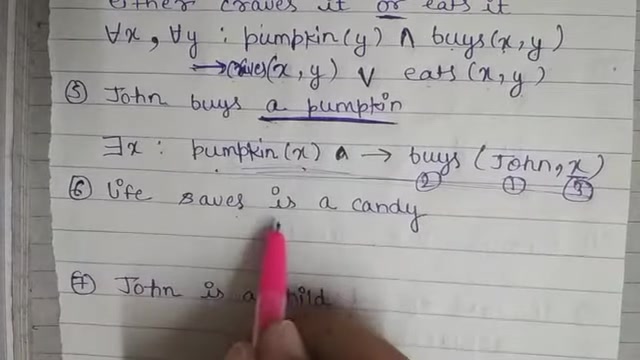 either craves it or eats it
∀x, ∀y : pumpkin(y) ∧ buys(x, y)
→ craves(x, y) ∨ eats (x, y)
⑤ John buys a pumpkin
∃x : pumpkin(x) ∧ → buys (John, x)
② ① ③
⑥ life saves is a candy
⑦ John is a child